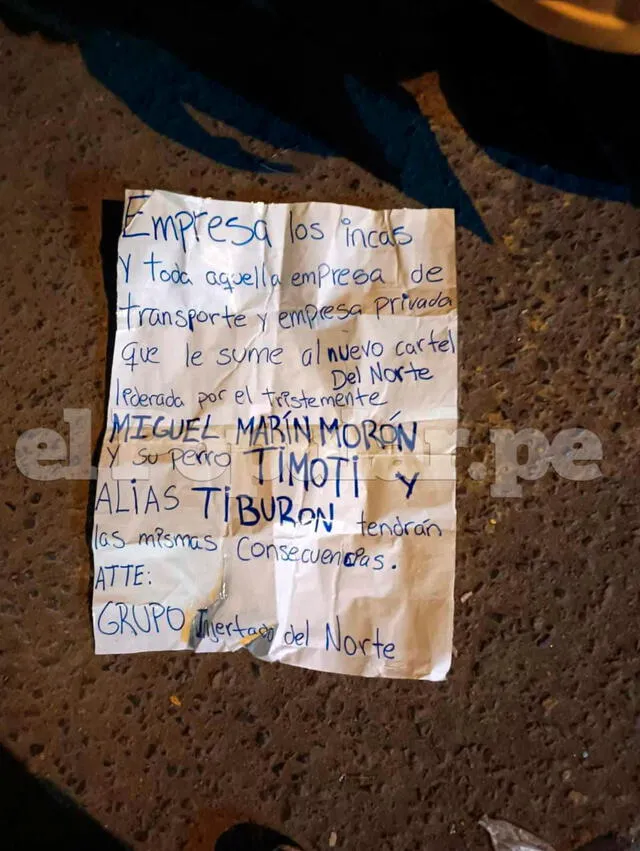 Empresa los incas
y toda aquella empresa de
transporte y empresa privada
que le sume al nuevo cartel
Del Norte
liderada por el tristemente
MIGUEL MARÍN MORÓN
y su perro TIMOTI y
ALIAS TIBURON tendrán
las mismas consecuencias.
ATTE:
GRUPO Injertado del Norte
elregular.pe